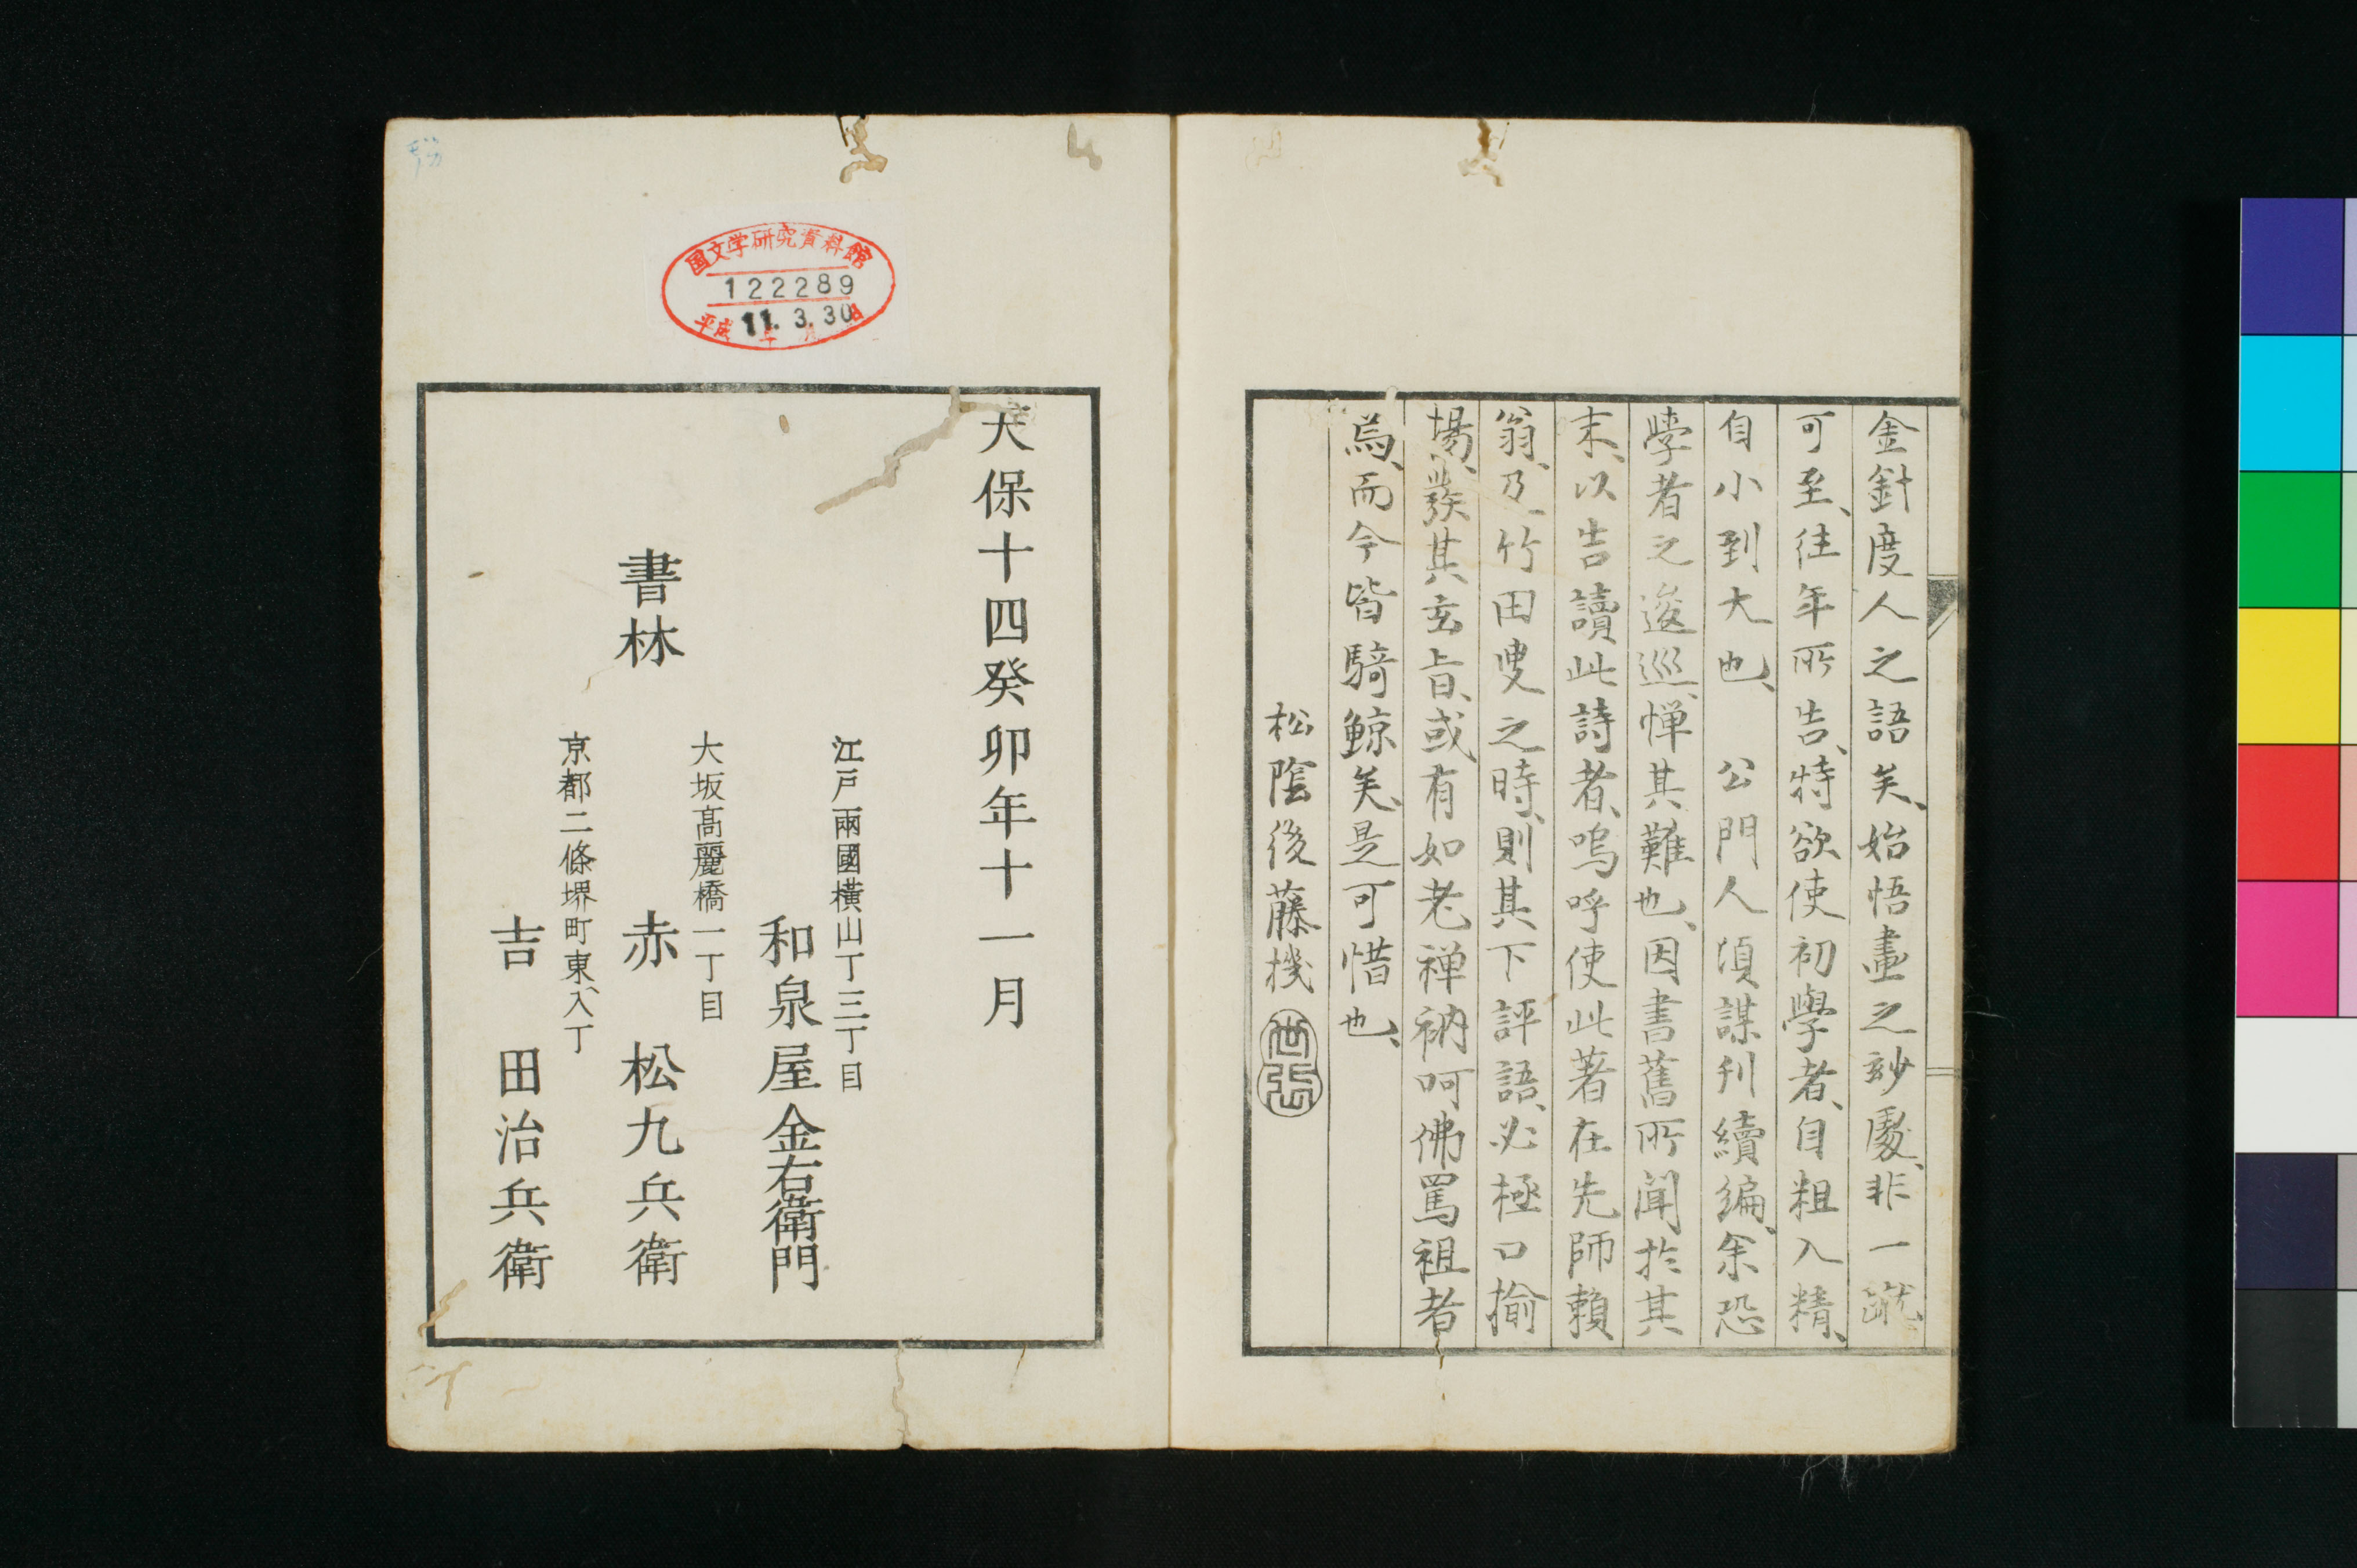 金針度人之語矣、始悟畫之玅處、非一蹴
可至、往年所告、特欲使初學者、自粗入精、
自小到大也、　公門人頃謀刊續編、余恐
學者之逡巡、憚其難也、因書舊所聞於其
末、以告讀此詩者、嗚呼使此著在先師賴
翁、乃竹田叟之時、則其下評語、必極口揄
揚、發其玄旨、或有如老禅衲呵佛罵祖者
焉、而今皆騎鯨矣、是可惜也、
松陰後藤機
天保十四癸卯年十一月
江戸兩國横山丁三丁目
和泉屋金右衛門
大坂髙麗橋一丁目
書林
赤松九兵衛
京都二條堺町東入丁
吉田治兵衛
国文学研究資料館
122289
平成11年3月30日